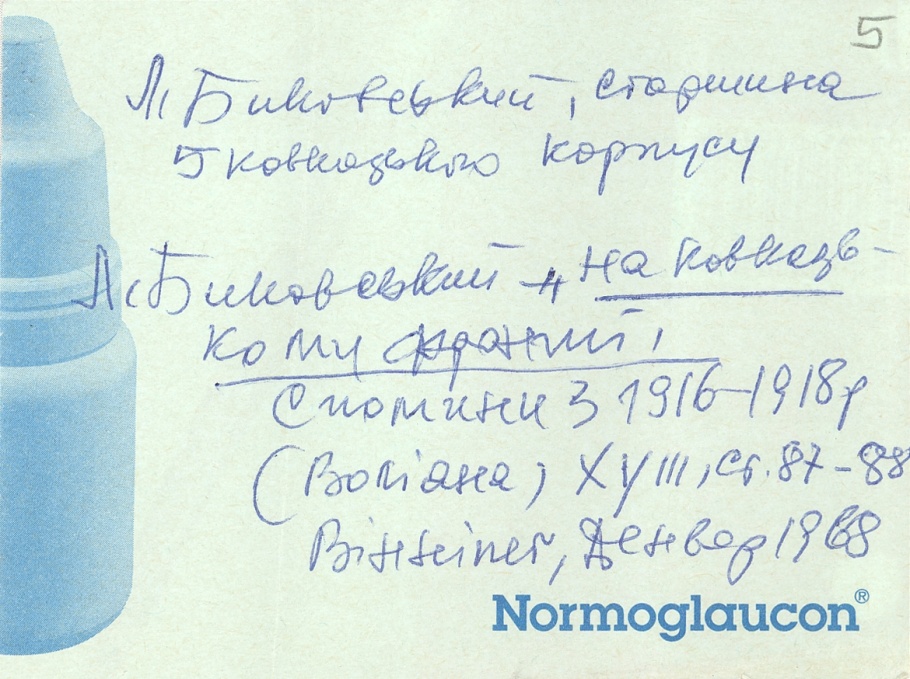 5
Л. Биковський, старшина
5 кавказького корпусу
Л. Биковський – „На Кавказь-
кому фронті"
Спомини з 1916–1918р
(Воліяна) ХУІІІ, ст. 87–88
Вінніпеґ, Денвер 1968
Normoglaucon®